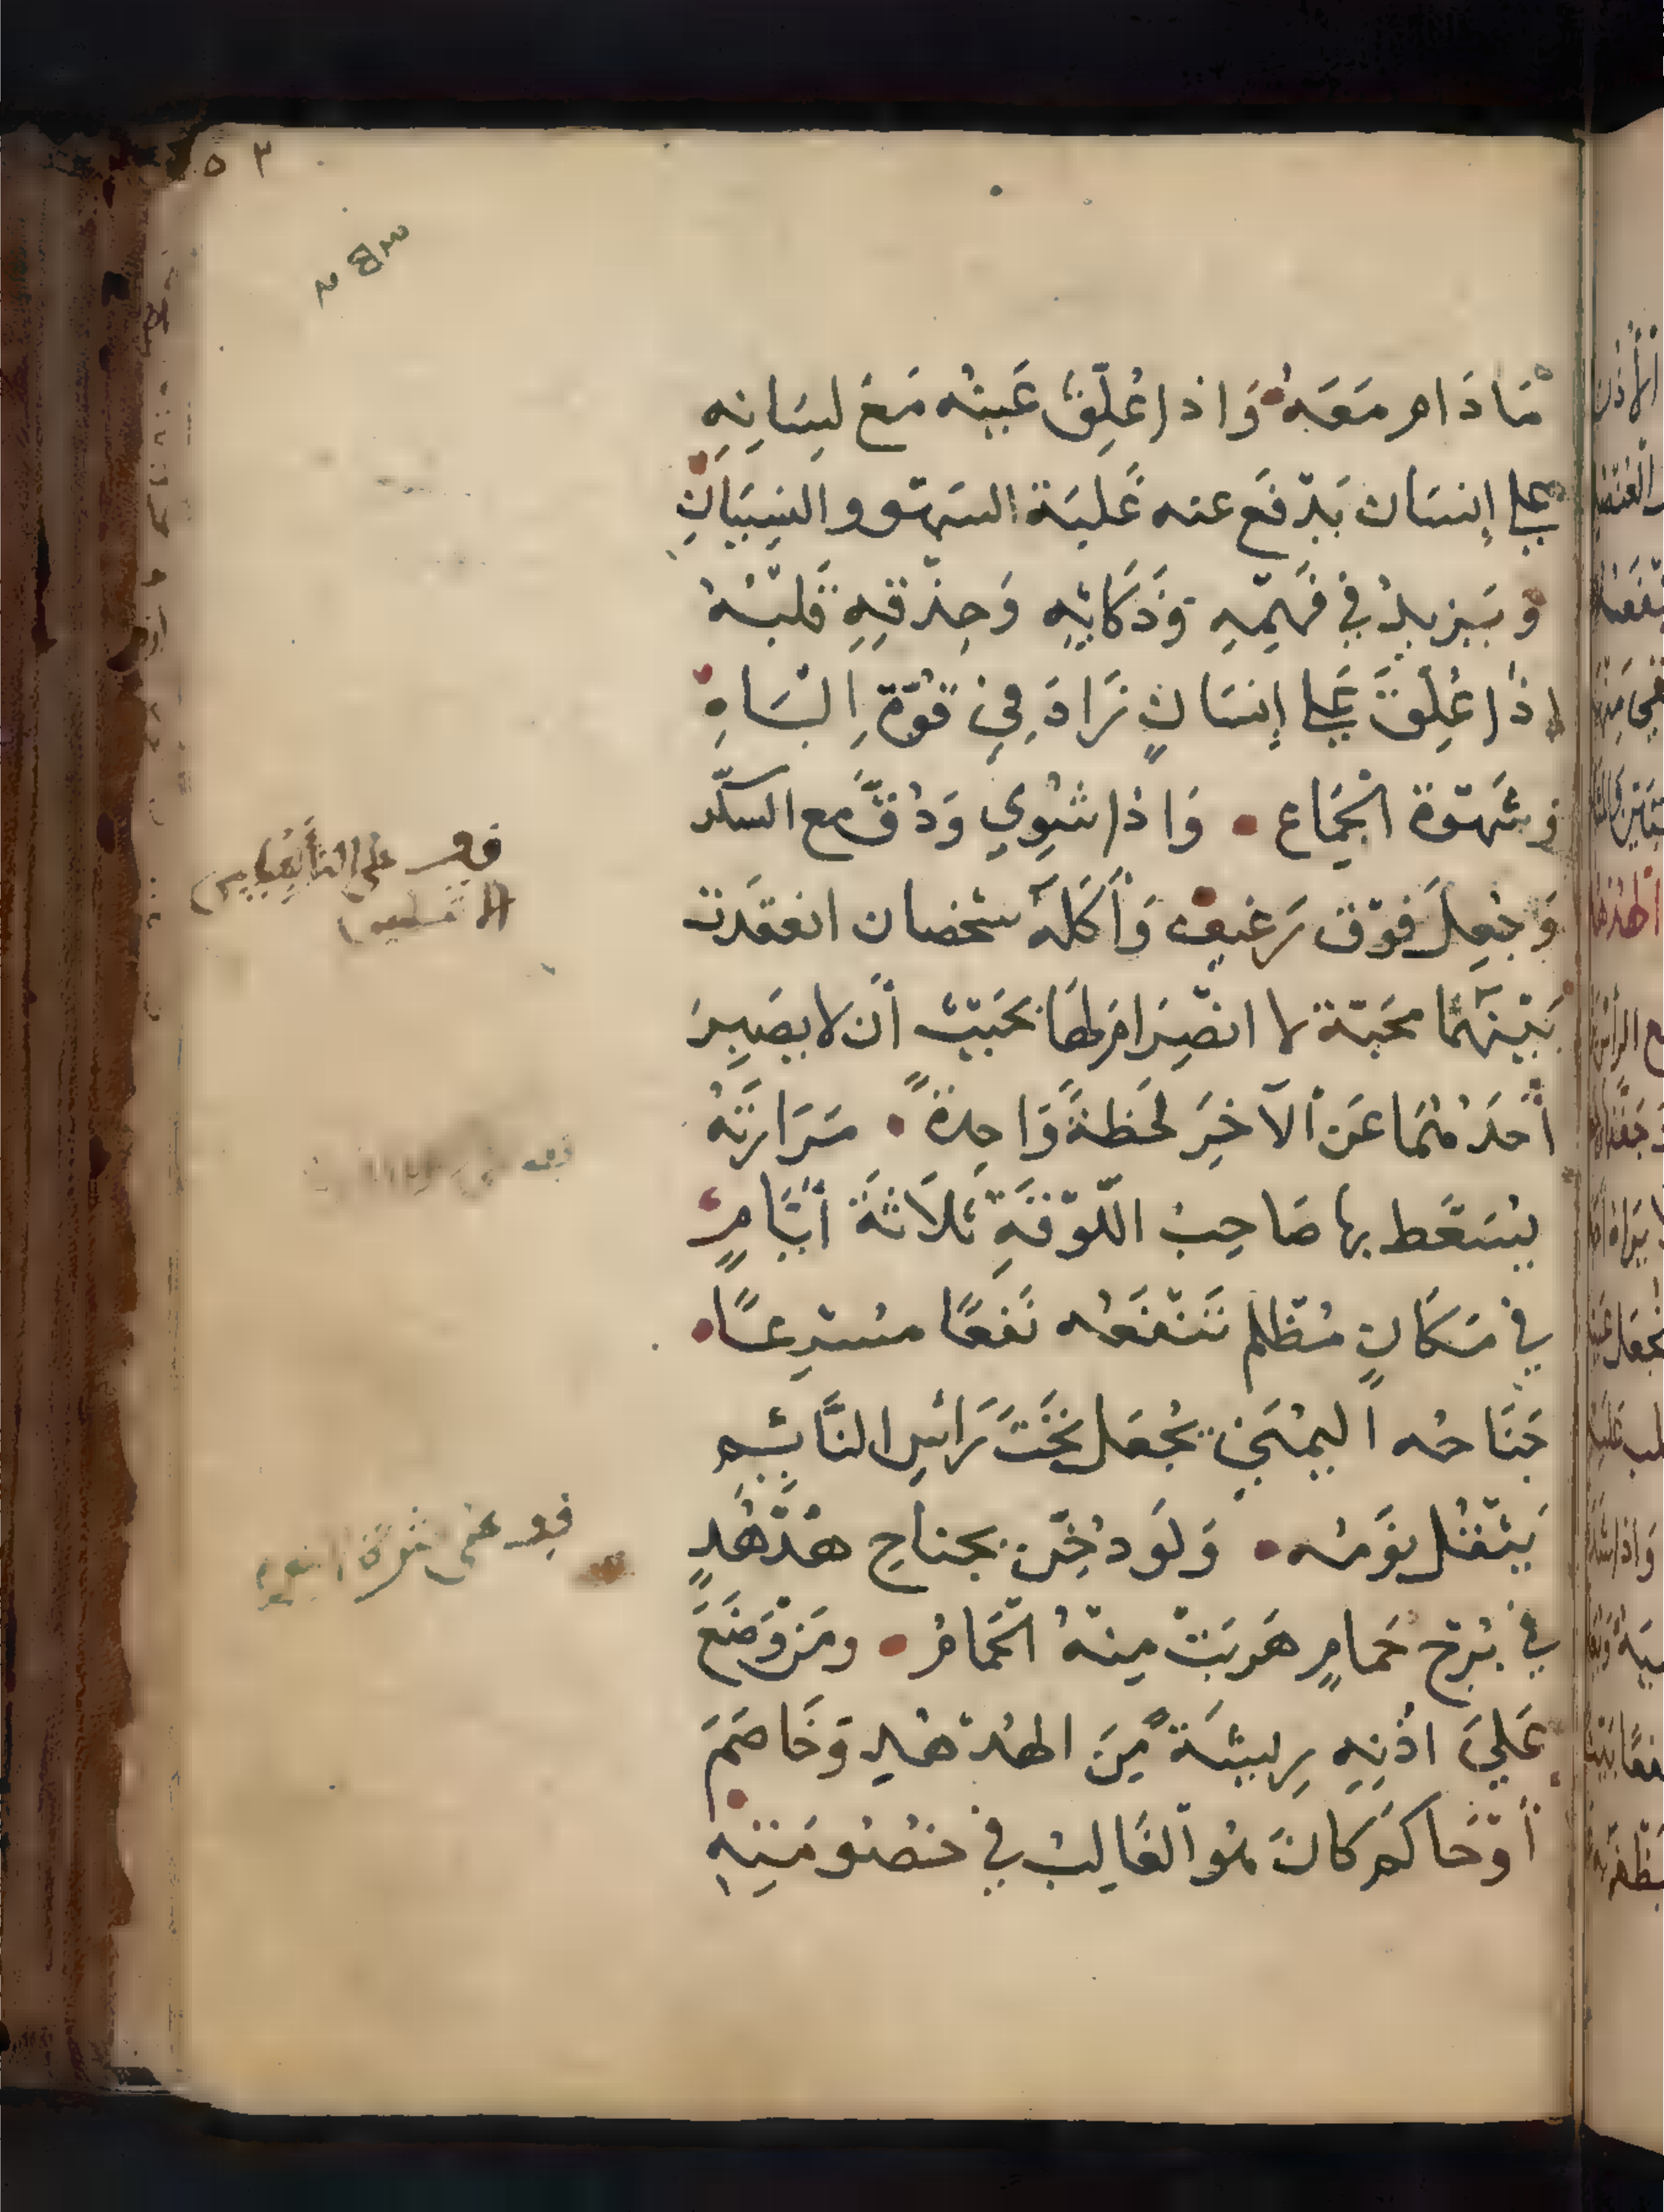 ٥٣
مَا دَام مَعَهُ وَاذا عُلِّقَ عَينُه مَعَ لِسَانِهِ
علي إِنسَان يَدْفَع عنه غَلبَة السَهْو والنِسيَانِ
وَيَزيدُ في فَهمِهِ وَذَكَائِهِ وَحِذْقِهِ قَلبُهُ
اذا عُلِّقَ عَلي إِنسَانٍ زَادَ فِي قُوَّةِ البَاهِ
وشَهْوَة الجِمَاع وَاذا شُوِي وَدُقَّ مع السكّر
وَجُعِلَ فَوْقَ رَغيف وَأَكَلَهُ شخصان انعقَدَت
بَيْنَهُمَا محَبّة لا انْصِرَام لهَا بحَيثُ أَن لا يصَبِرَ
أَحَدُهُمَا عَن الآخِرَ لَحَظةً وَاحِدةً مَرَارَتهُ
يُسَعَّط بها صَاحِبُ اللَّوْقَةِ ثَلاَثَةَ أَيَّامٍ
في مَكَانٍ مُظْلِم تَنْفَعُه نَفعًا مُسْرِعًا
جَنَاحُه اليُمنَي يُجْعَل تَحْتَ رَأسِ النَّائِم
يَثْقُل نَومُه وَلَو دُخِّنَ بجناحِ هُدْهُدٍ
في بُرْج حَمامٍ هَرَبَتْ مِنهُ الحَمَامُ ومَن وَضَعَ
عَلَيَ اذُنِهِ رِيشَةً مِنَ الهُدْهُدِ وَخَاصَمَ
أَوْ حَاكم كَانَ هُوَ الغَالِبُ في خُصُومَتِهِ